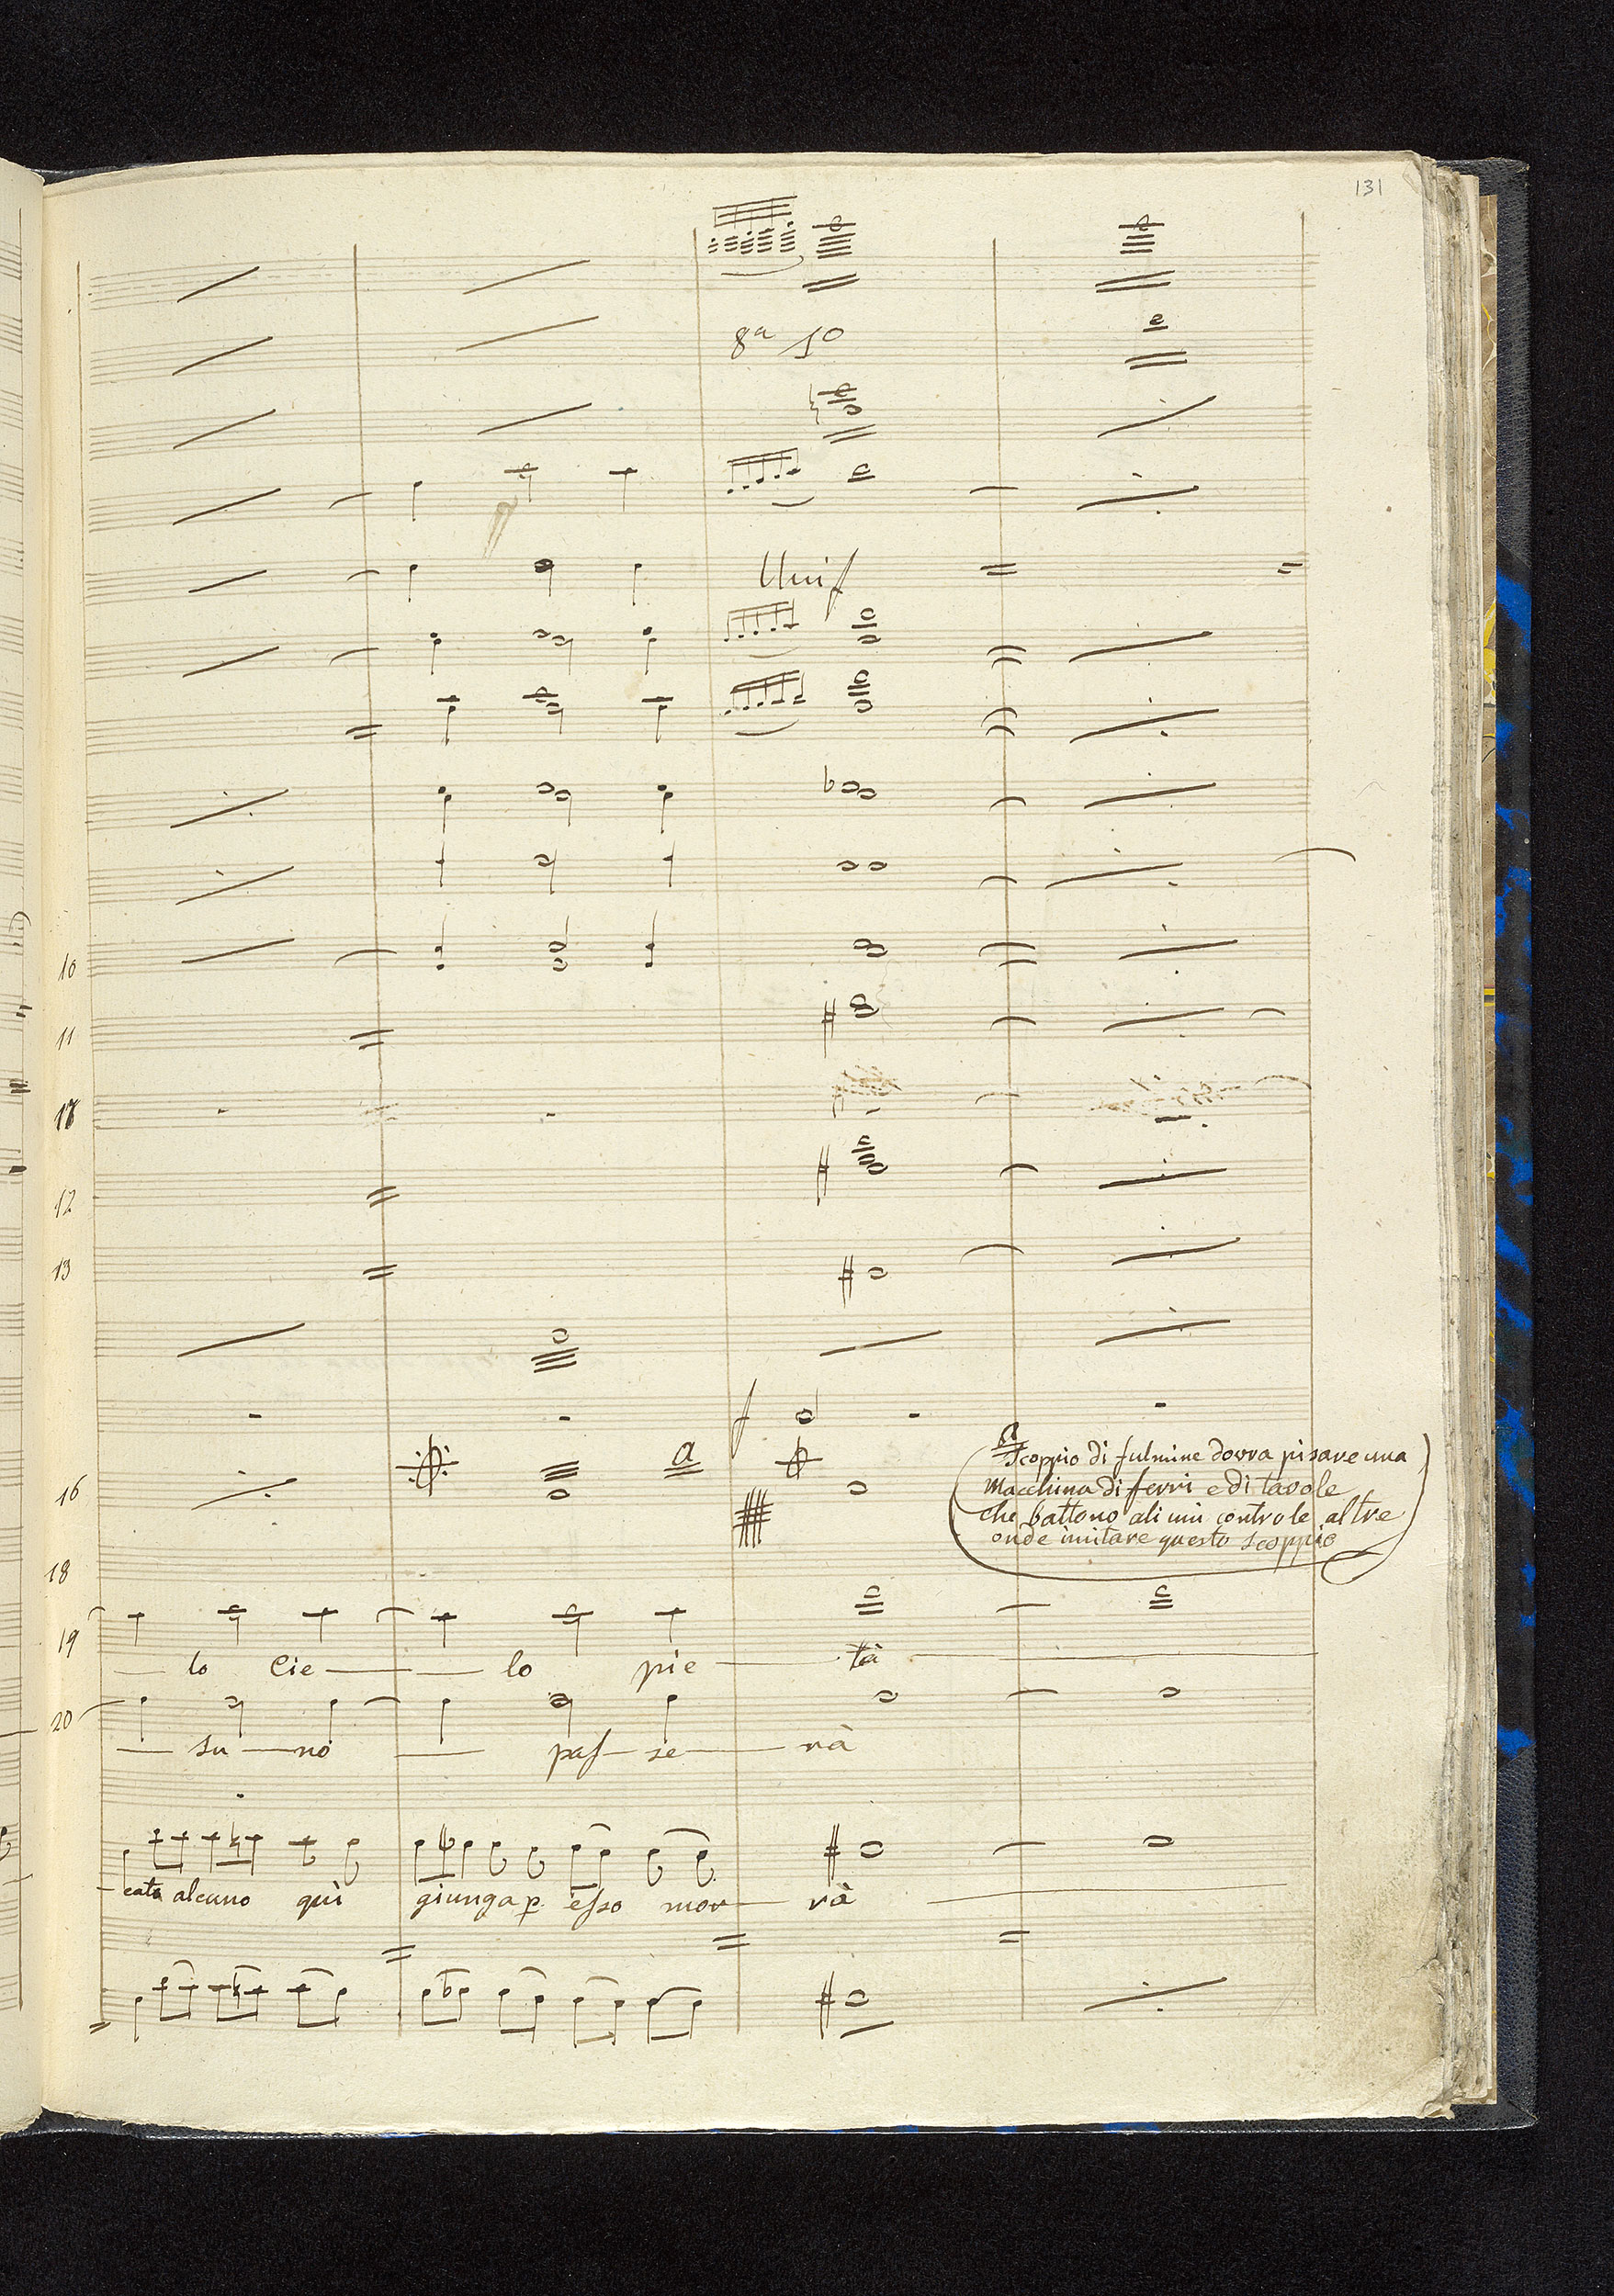 131
8ª 1º
Unis
10
11
12
13
f
a
a
Scoppio di fulmine dovra pisare una
Macchina di ferri e di tavole
che battono ali uni contro le altre
onde imitare questo scoppio
16
18
19
lo Cie — lo pie — tà
20
su — no pas — se — rà
cata alcuno quì giunga p. esso mor — rà